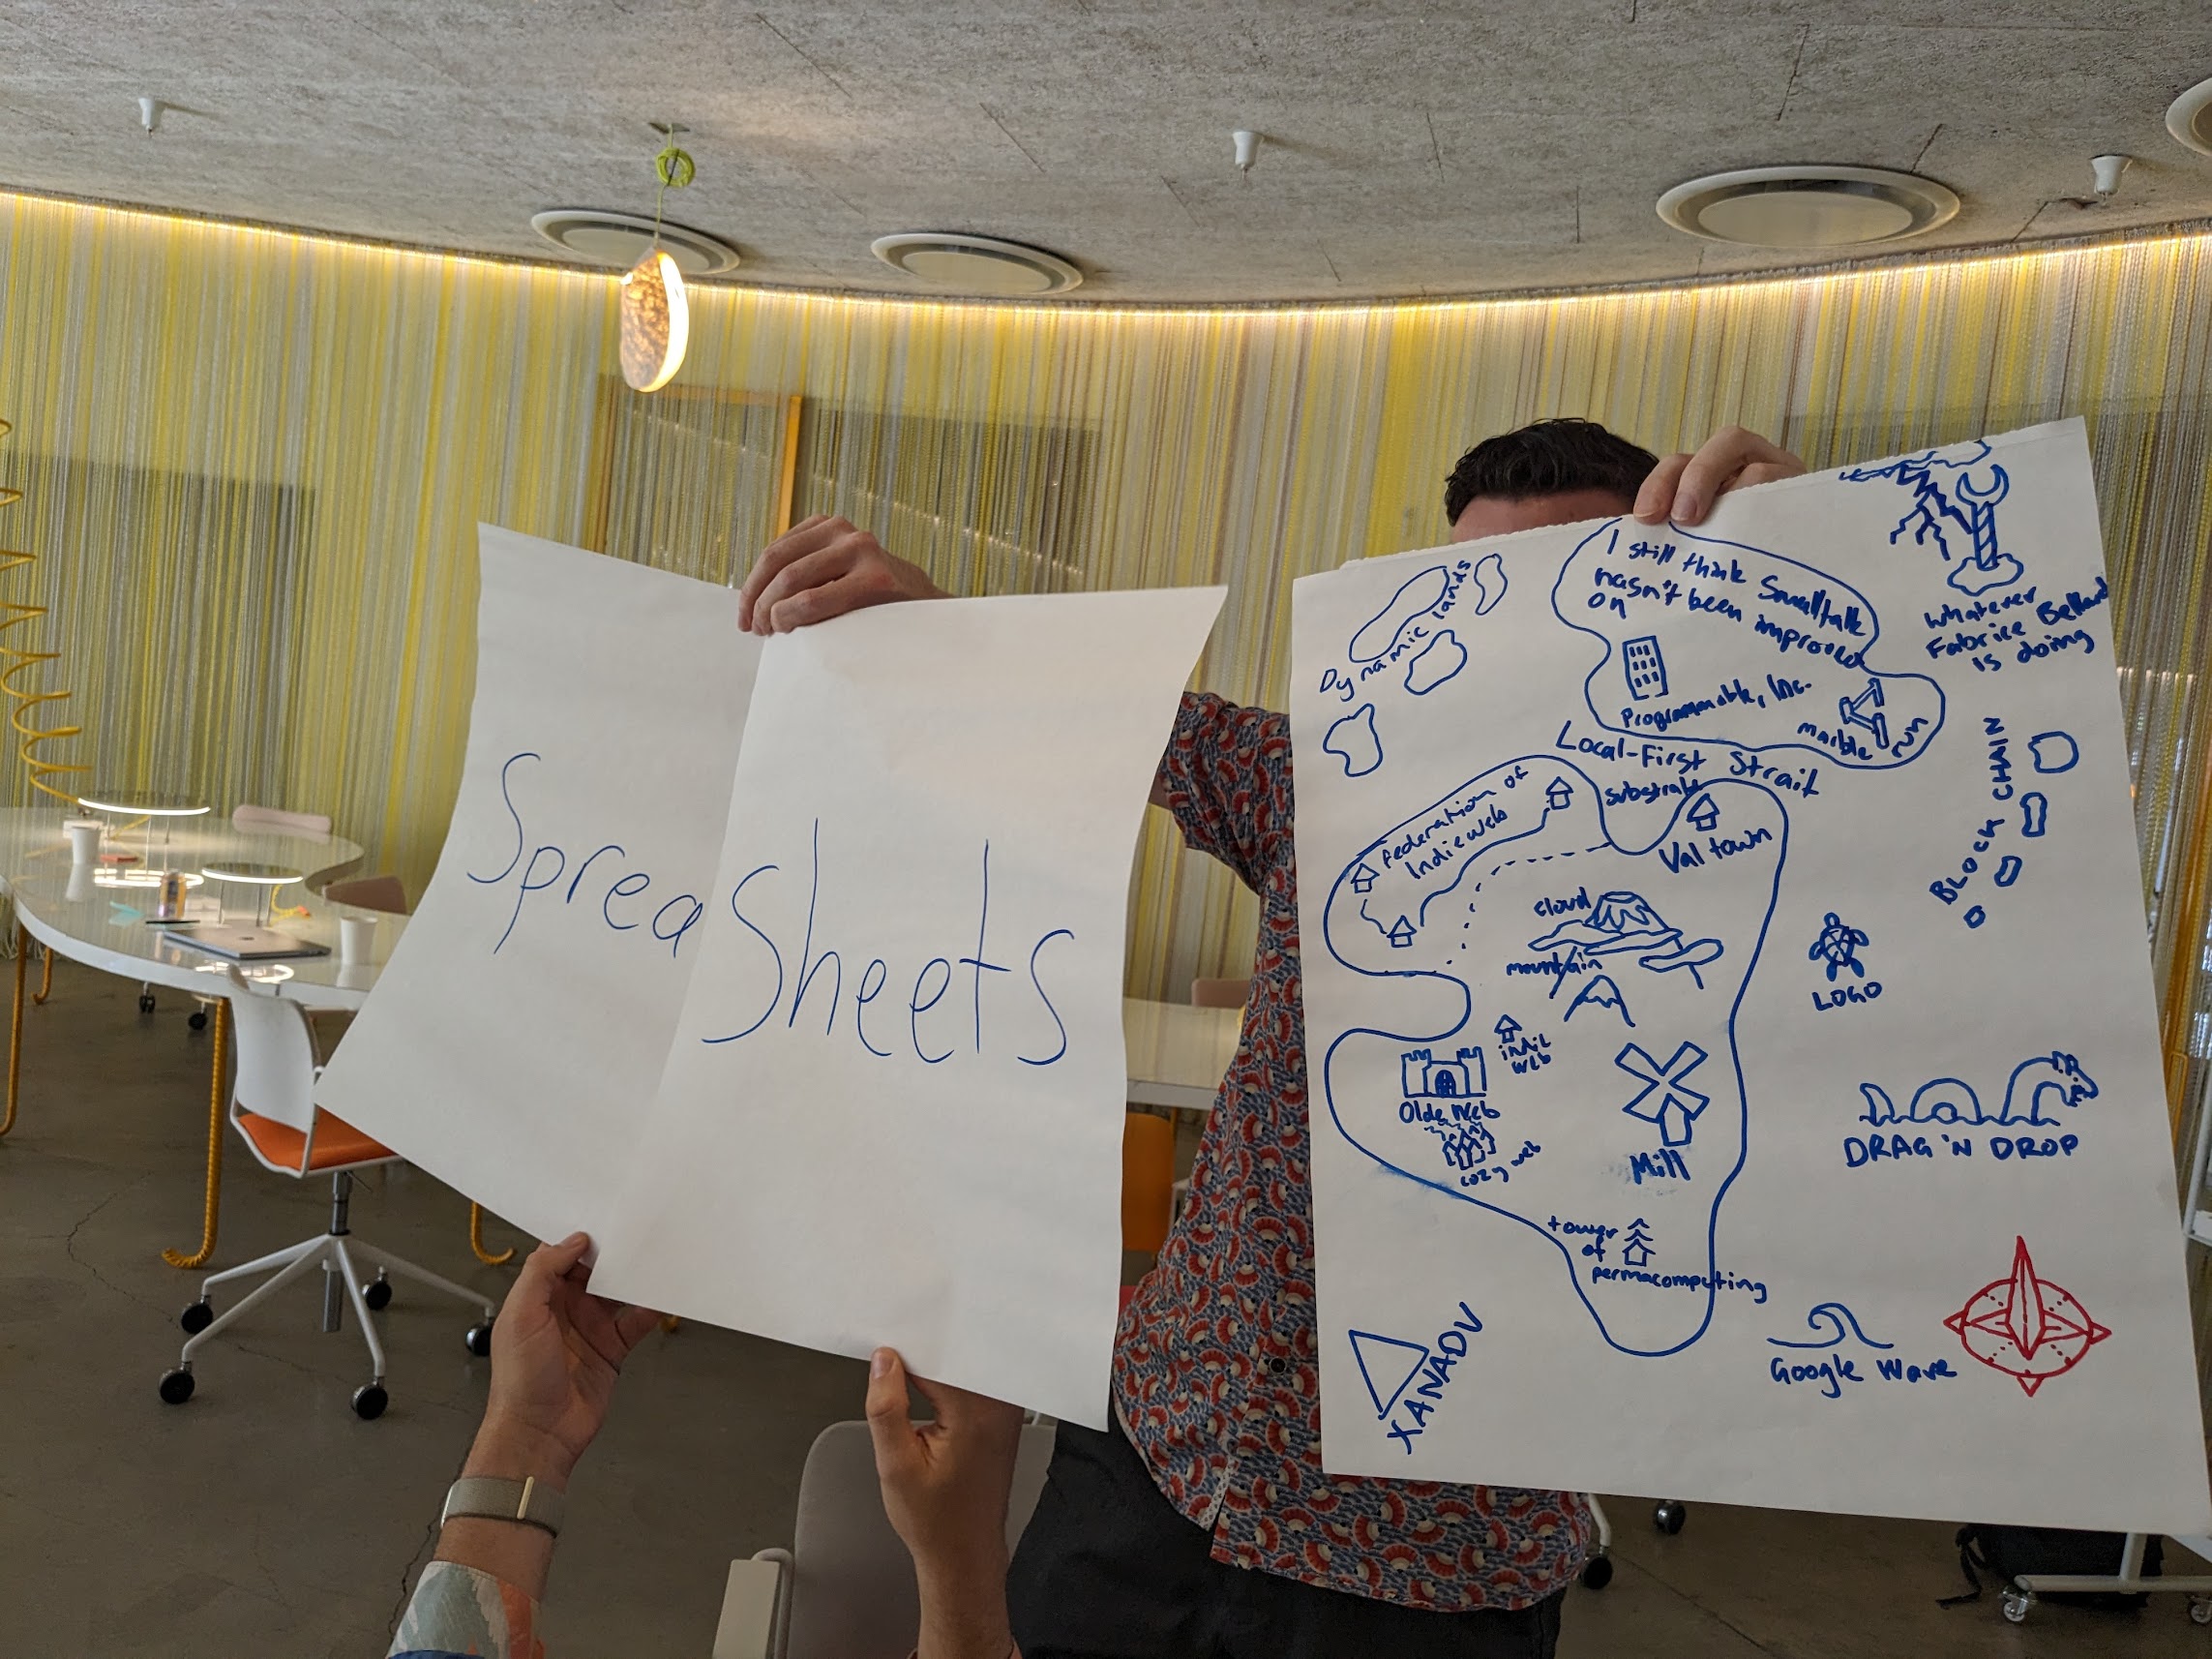 Sprea Sheets
Dynamic lands
I still think Smalltalk
hasn't been improved
on
Programmable, Inc.
marble run
Whatever
Fabrice Bellard
is doing
Local-First Strait
substrate
Federation of
Indieweb
Val town
BLOCK CHAIN
cloud
mountain
LOGO
indie
web
Olde Web
cozy web
Mill
DRAG 'N DROP
tower
of
permacomputing
XANADU
Google Wave